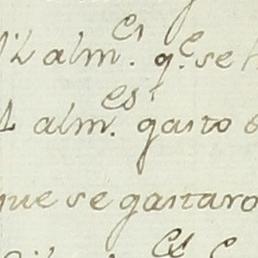 alm.es q.e se
alm.es gasto
que se gastaro